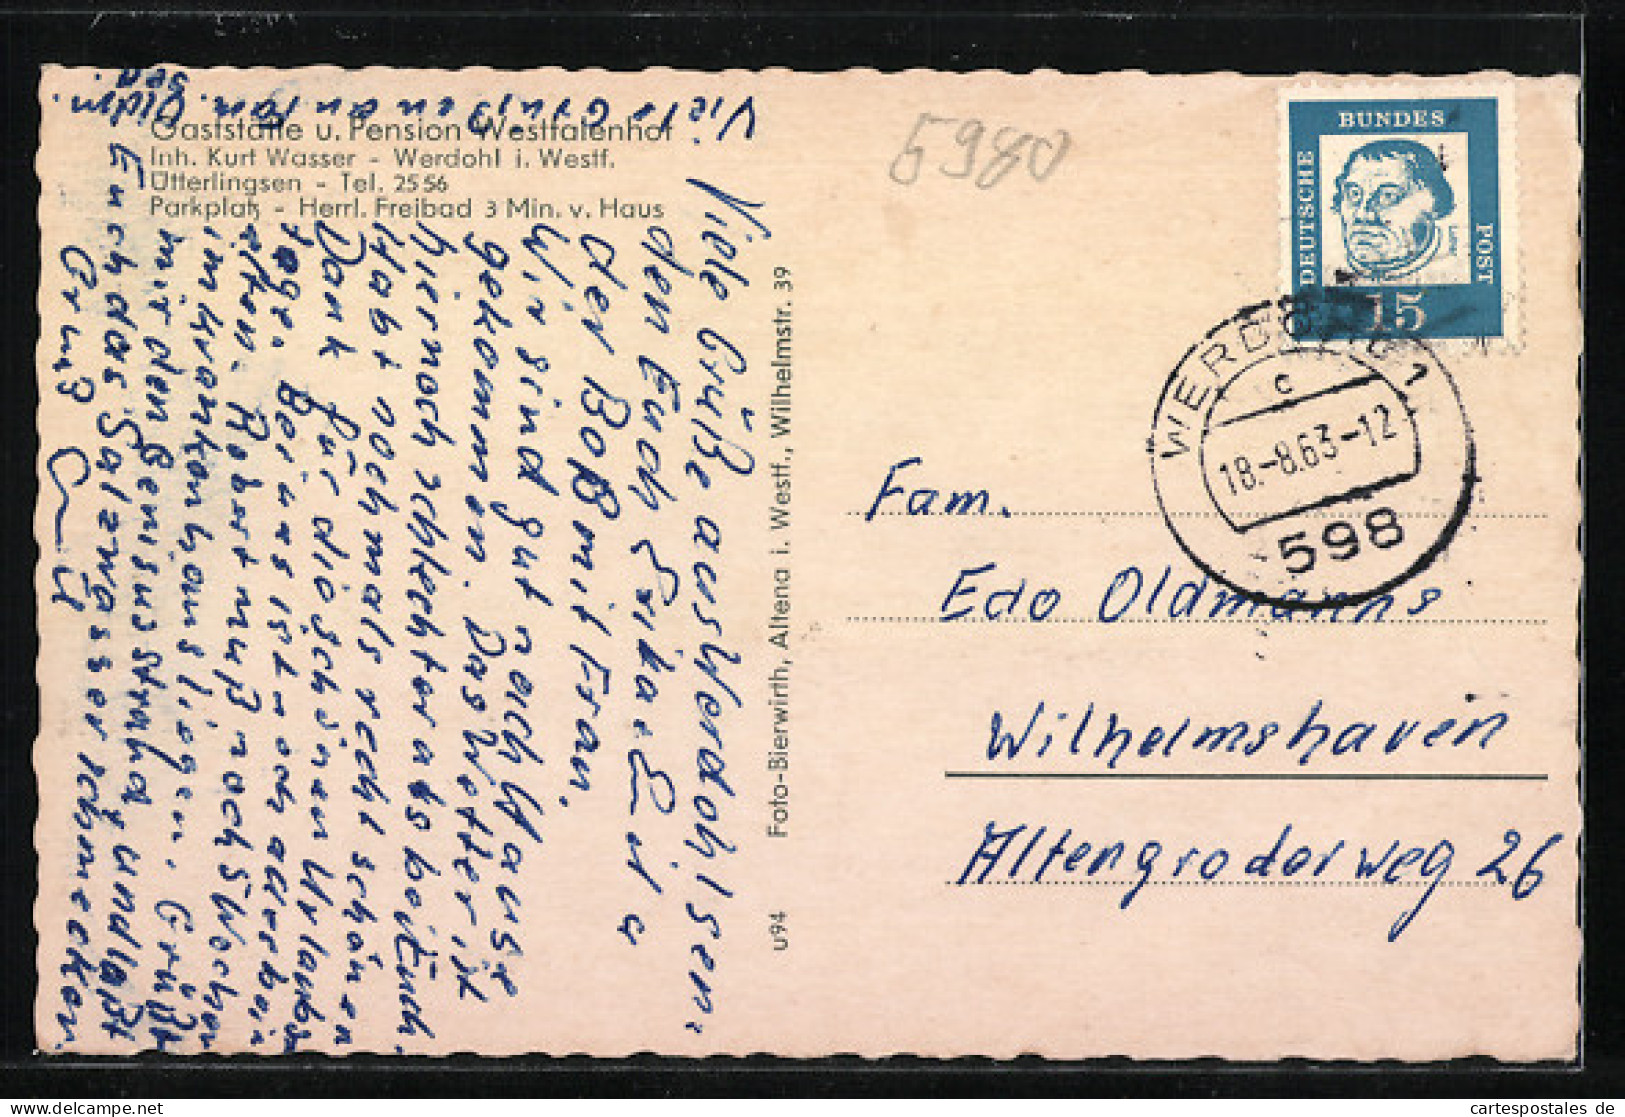 Viele Grüßen an Fam. Oldm.
Gaststätte u. Pension Westfalenhof
Inh. Kurt Wasser - Werdohl i. Westf.
Ütterlingsen - Tel. 2556
Parkplatz - Herrl. Freibad 3 Min. v. Haus
Viele Grüße aus Werdohl sen:
den Euch Erika, u
der Boß mit Frau.
Wir sind gut nach Hause
gekommen. Das Wetter ist
hier noch schlechter als bei Euch.
Habt nochmals recht schönen
Dank für die schönen Urlaubs
tage. Bei uns ist noch alles beim
alten. Robert muß noch 5 Wochen
im Krankenhaus liegen. Grüßt
mir den Genius strand und laßt
Euch das Salzwasser schmecken.
Gruß
u94
Foto-Bierwirth, Altena i. Westf., Wilhelmstr. 39
5980
DEUTSCHE BUNDESPOST
15
WERDOHL 1
c
18.-8.63-12
598
Fam.
Edo Oldmanns
Wilhelmshaven
Altengroderweg 26
cartespostales de